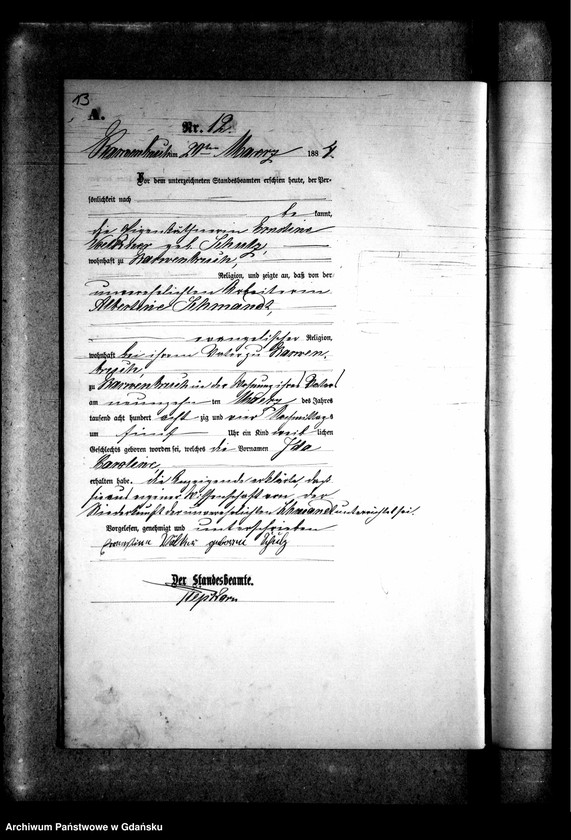 13
A.
Nr. 12.
Karwenbruch am 20ten Maerz 1884.
Vor dem unterzeichneten Standesbeamten erschien heute, der Per-
sönlichkeit nach
be kannt,
die Eigenkäthnerin
geb. Schulz,
wohnhaft zu Karwenbruch,
Religion, und zeigte an, daß von der
unverehelichten Arbeiterin
Albertine Schmandt,
evangelischer Religion,
wohnhaft bei ihrem Vater zu Karwen-
bruch,
zu Karwenbruch in der Wohnung ihres Vaters
am neunzehn ten Maerz des Jahres
tausend acht hundert acht zig und vier Nachmittags
um fünf Uhr ein Kind weib lichen
Geschlechts geboren worden sei, welches die Vornamen Ida
Caroline,
erhalten habe. Die Anzeigende erklärte, daß
sie aus eigener Wissenschaft von der
Niederkunft der unverehelichten Schmandt unterrichtet sei.
Vorgelesen, genehmigt und unterschrieben
geboren Schulz
Der Standesbeamte.
Archiwum Państwowe w Gdańsku